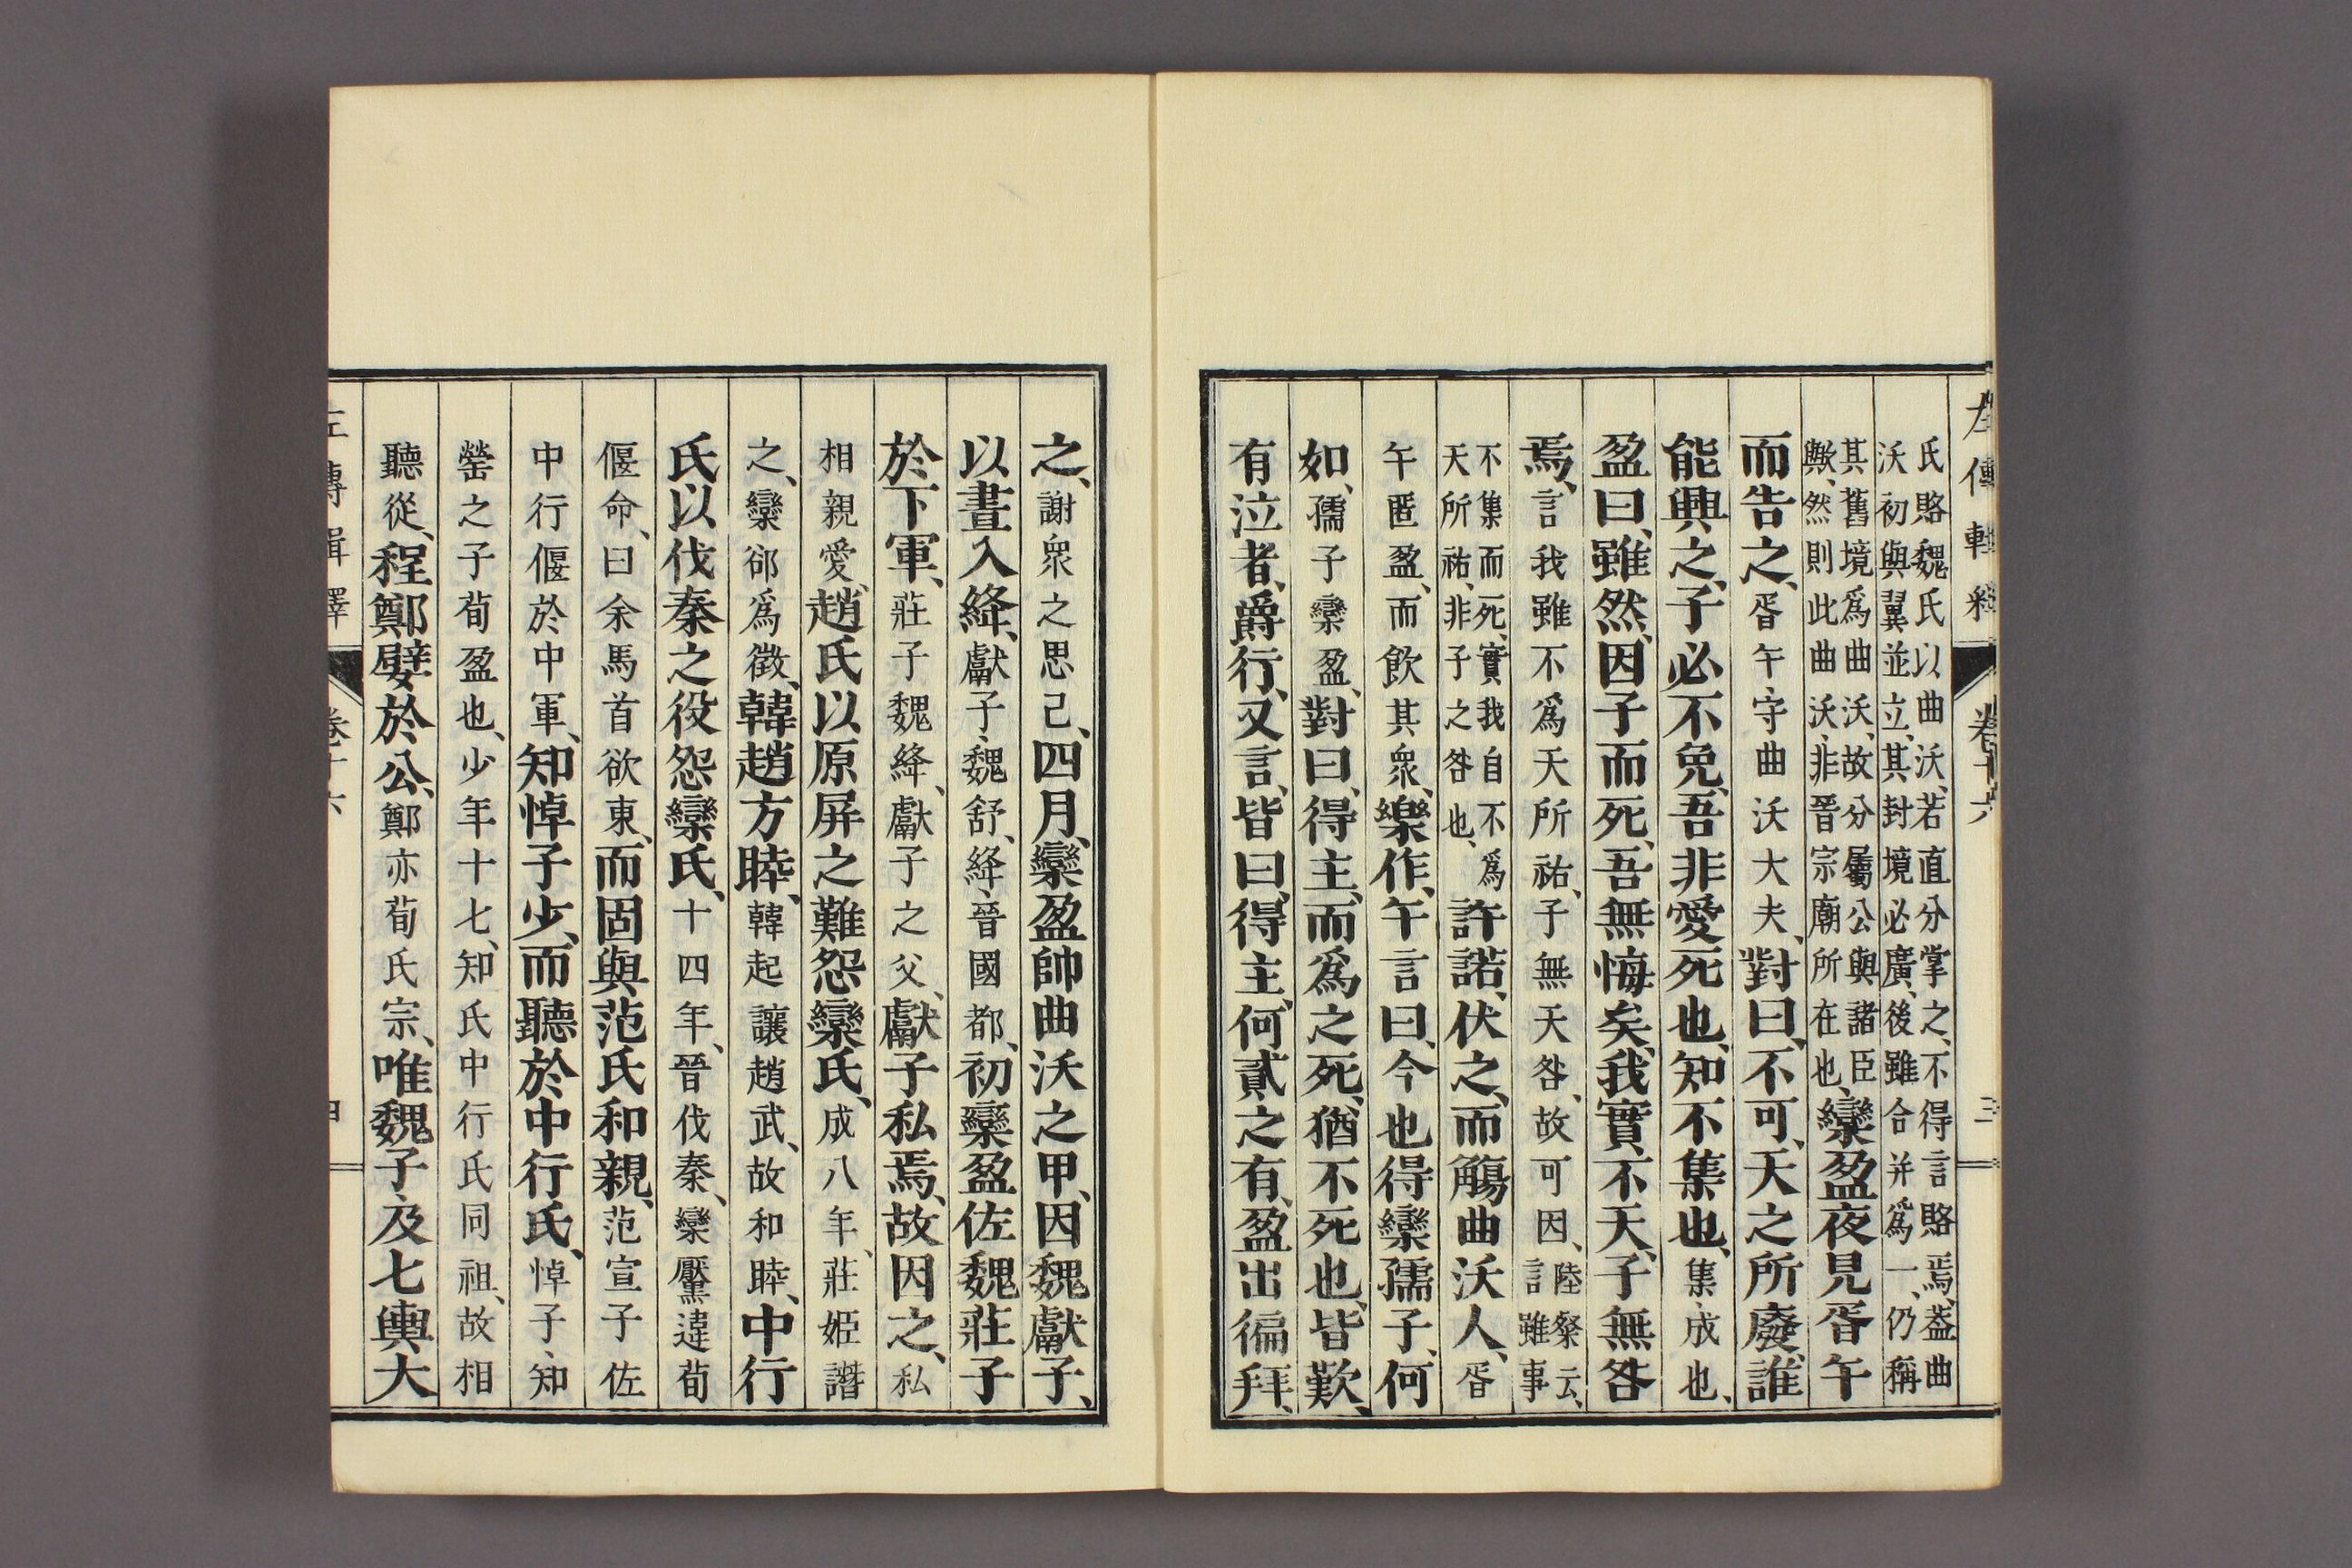 氏賂魏氏以曲沃、若直分掌之、不得言賂焉、葢曲
沃初與翼並立、其封境必廣、後雖合并爲一、仍稱
其舊境爲曲沃、故分屬公與諸臣
歟、然則此曲沃、非晉宗廟所在也、欒盈夜見胥午
而告之、胥午、守曲沃大夫、對曰、不可、天之所廢、誰
能興之、子必不免、吾非愛死也、知不集也、集、成也、
盈曰、雖然、因子而死、吾無悔矣、我實不天、子無咎
焉、言我雖不爲天所祐、子無天咎、故可因、陸粲云、言雖事
不集而死、實我自不爲
天所祐、非子之咎也、許諾、伏之、而觴曲沃人、胥
午匿盈、而飮其衆、樂作、午言曰、今也得欒孺子、何
如、孺子欒盈、對曰、得主、而爲之死、猶不死也、皆歎、
有泣者、爵行、又言、皆曰、得主、何貳之有、盈出徧拜、
之、謝衆之思己、四月、欒盈帥曲沃之甲、因魏獻子、
以晝入絳、獻子、魏舒、絳、晉國都、初欒盈佐魏莊子
於下軍、莊子魏絳、獻子之父、獻子私焉、故因之、私
相親愛、趙氏以原屏之難怨欒氏、成八年、莊姬譖
之、欒郤爲徵、韓趙方睦、韓起讓趙武、故和睦、中行
氏以伐秦之役怨欒氏、十四年、晉伐秦、欒黶違荀
偃命、曰余馬首欲東、而固與范氏和親、范宣子佐
中行偃於中軍、知悼子少、而聽於中行氏、悼子、知
罃之子荀盈也、少年十七、知氏中行氏同祖、故相
聽從、程鄭嬖於公、鄭亦荀氏宗、唯魏子及七輿大